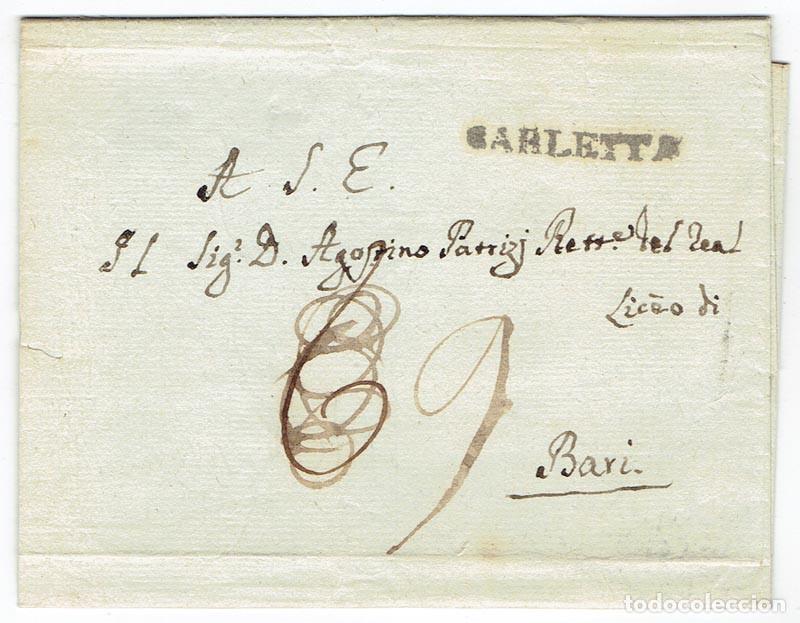 BARLETTA
A S. E.
Il Sig.r D. Agostino Patrizj Rett.e del Real
Licèo di
6 9
Bari.
todocoleccion